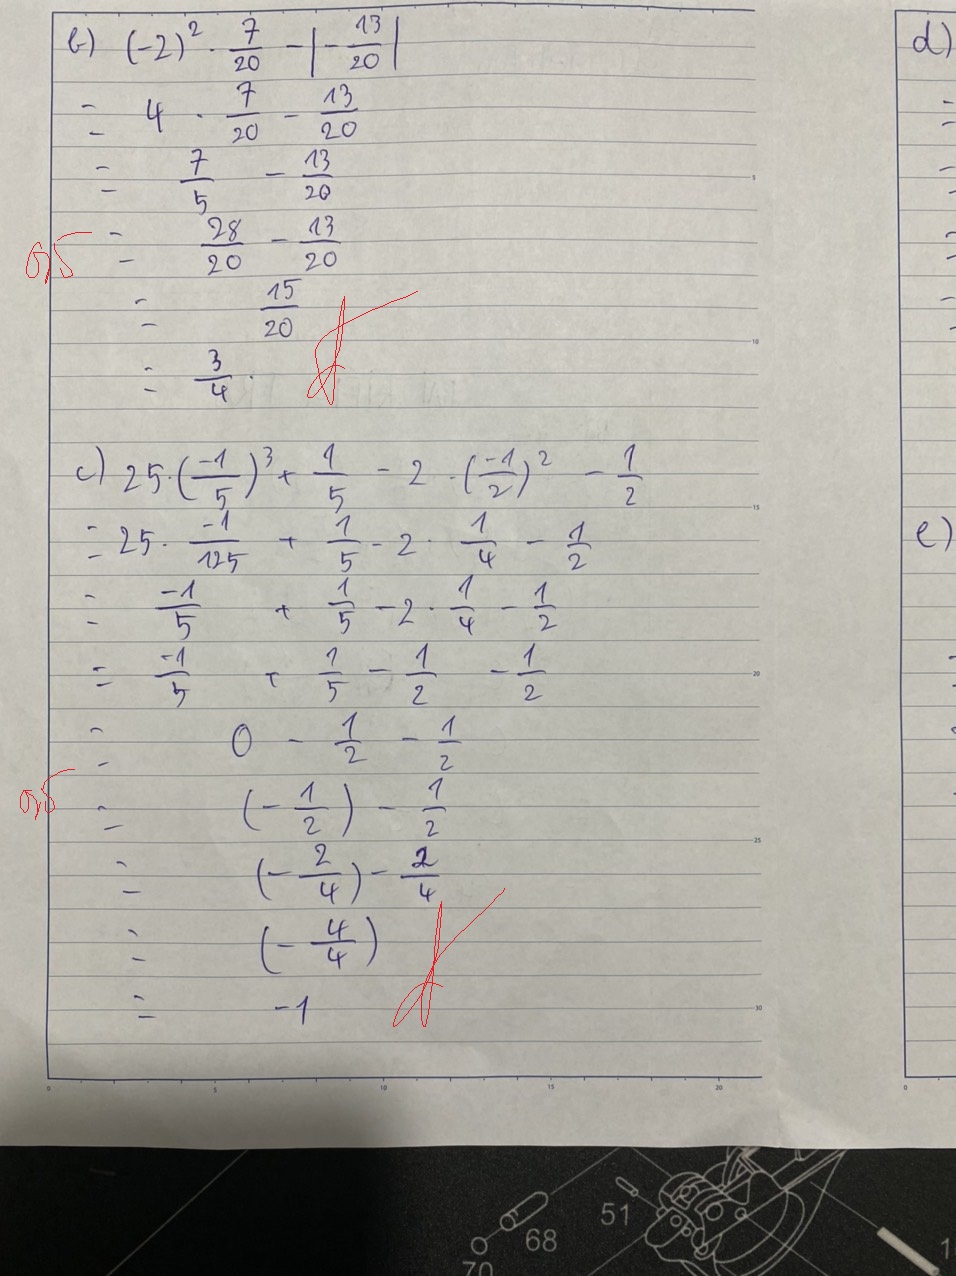 b) (-2)² · 7/20 - |-13/20|
= 4 · 7/20 - 13/20
= 7/5 - 13/20
0,5 = 28/20 - 13/20
= 15/20
= 3/4.
c) 25·(-1/5)³ + 1/5 - 2 · (-1/2)² - 1/2
= 25 · -1/125 + 1/5 - 2 · 1/4 - 1/2
= -1/5 + 1/5 - 2 · 1/4 - 1/2
= -1/5 + 1/5 - 1/2 - 1/2
= 0 - 1/2 - 1/2
0,5 = (-1/2) - 1/2
= (-2/4) - 2/4
= (-4/4)
= -1
d)
e)
5
10
15
20
25
30
0 5 10 15 20
0
51
68
70